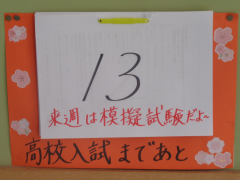 13
来週は模擬試験だよ~
高校入試まであと